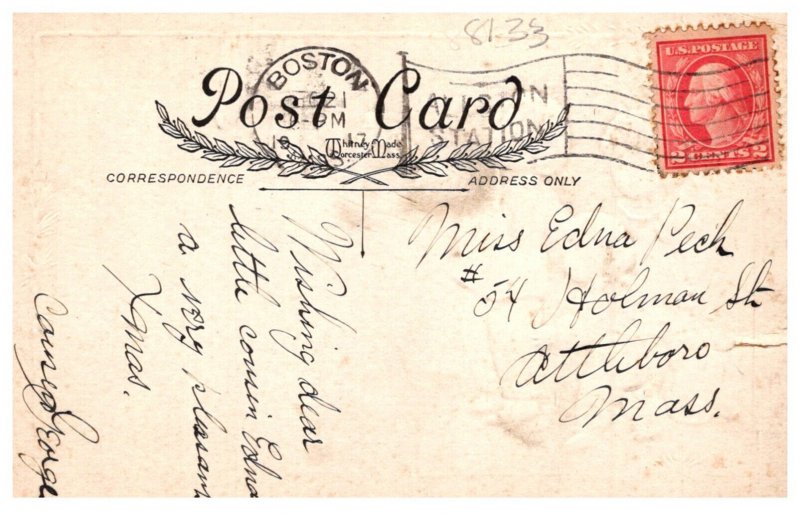 81.33
BOSTON
DEC 21
PM
1917
ALLSTON
STATION
U.S. POSTAGE
2 CENTS 2
Post Card
Whitney Made
Worcester Mass.
CORRESPONDENCE
ADDRESS ONLY
Wishing dear
little cousin Edna
a very pleasant
X'mas.
Cousin George
Miss Edna Peck
#54 Holman St
Attleboro
Mass.